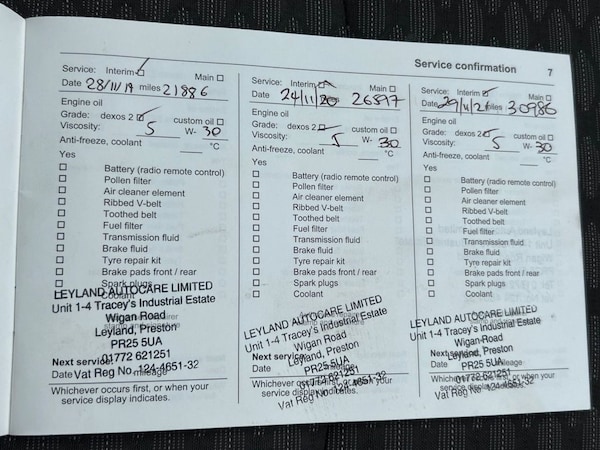 Service confirmation 7
Service: Interim ☑ Main ☐
Date 28/11/19 miles 21886
Engine oil
Grade: dexos 2 ☑ custom oil ☐
Viscosity: 5 W- 30
Anti-freeze, coolant °C
Yes
☐ Battery (radio remote control)
☐ Pollen filter
☐ Air cleaner element
☐ Ribbed V-belt
☐ Toothed belt
☐ Fuel filter
☐ Transmission fluid
☐ Brake fluid
☐ Tyre repair kit
☐ Brake pads front / rear
☐ Spark plugs
☐ Coolant
LEYLAND AUTOCARE LIMITED
Unit 1-4 Tracey's Industrial Estate
Wigan Road
Leyland, Preston
PR25 5UA
Next service
01772 621251
Date mileage
Vat Reg No 124-4651-32
Whichever occurs first, or when your
service display indicates.
Service: Interim ☑ Main ☐
Date 24/11/20 26597
Engine oil
Grade: dexos 2 ☑ custom oil ☐
Viscosity: 5 W- 30
Anti-freeze, coolant °C
Yes
☐ Battery (radio remote control)
☐ Pollen filter
☐ Air cleaner element
☐ Ribbed V-belt
☐ Toothed belt
☐ Fuel filter
☐ Transmission fluid
☐ Brake fluid
☐ Tyre repair kit
☐ Brake pads front / rear
☐ Spark plugs
☐ Coolant
LEYLAND AUTOCARE LIMITED
Unit 1-4 Tracey's Industrial Estate
Wigan Road
Leyland, Preston
Next service
PR25 5UA
Date
01772 621251
Whichever occurs first, or when your
service display indicates.
Vat Reg No 124-4651-32
Service: Interim ☑ Main ☐
Date 29/11/21 miles 30986
Engine oil
Grade: dexos 2 ☑ custom oil ☐
Viscosity: 5 W- 30
Anti-freeze, coolant °C
Yes
☐ Battery (radio remote control)
☐ Pollen filter
☐ Air cleaner element
☐ Ribbed V-belt
☐ Toothed belt
☐ Fuel filter
☐ Transmission fluid
☐ Brake fluid
☐ Tyre repair kit
☐ Brake pads front / rear
☐ Spark plugs
☐ Coolant
LEYLAND AUTOCARE LIMITED
Unit 1-4 Tracey's Industrial Estate
Wigan Road
Leyland, Preston
Next service
PR25 5UA
Date mileage
01772 621251
Whichever occurs first, or when your
service display indicates.
Vat Reg No 124-4651-32